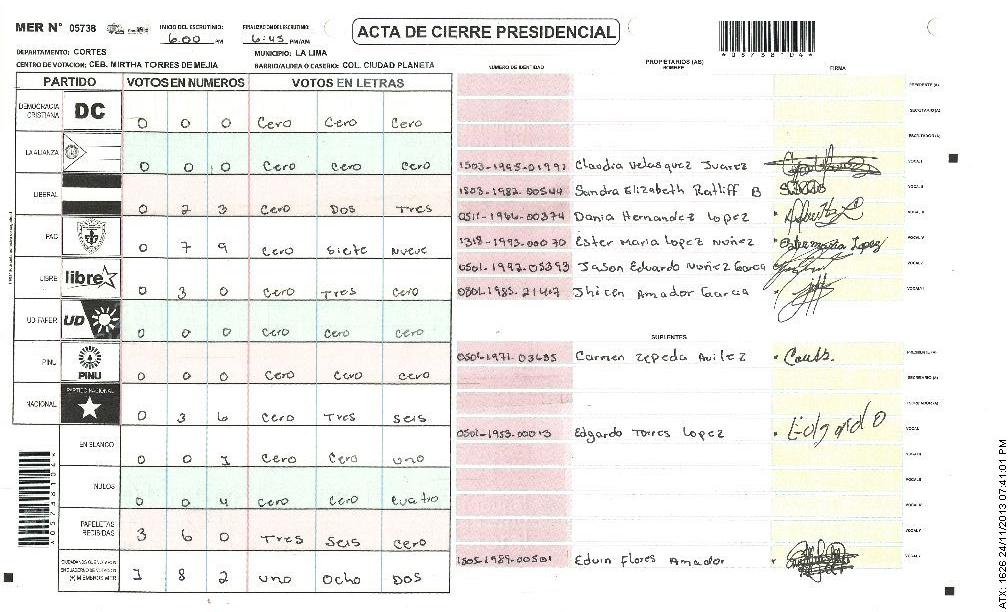 MER N° 05738
INICIO DEL ESCRUTINIO: 6:00 PM
FINALIZACION DEL ESCRUTINIO: 6:45 PM/AM
ACTA DE CIERRE PRESIDENCIAL
*05738104*
DEPARTAMENTO: CORTES
MUNICIPIO: LA LIMA
CENTRO DE VOTACION: CEB. MIRTHA TORRES DE MEJIA
BARRIO/ALDEA O CASERIO: COL. CIUDAD PLANETA
PARTIDO VOTOS EN NUMEROS VOTOS EN LETRAS
DEMOCRACIA CRISTIANA DC 0 0 0 Cero Cero Cero
LA ALIANZA 0 0 0 Cero Cero Cero
LIBERAL 0 2 3 Cero Dos Tres
PAC 0 7 9 Cero Siete Nueve
LIBRE libre 0 3 0 Cero Tres Cero
UD FAPER UD 0 0 0 Cero Cero Cero
PINU PINU 0 0 0 Cero Cero Cero
NACIONAL PARTIDO NACIONAL 0 3 6 Cero Tres Seis
EN BLANCO 0 0 1 Cero Cero uno
NULOS 0 0 4 Cero Cero Cuatro
PAPELETAS RECIBIDAS 3 6 0 Tres Seis Cero
(+) MIEMBROS MER 1 8 2 uno Ocho Dos
NUMERO DE IDENTIDAD PROPIETARIOS (AS) NOMBRE FIRMA
PRESIDENTE (A)
SECRETARIO (A)
ESCRUTADOR (A)
1503-1995-01991 Claudia Velasquez Juarez VOCAL I
1803-1982-00544 Sandra Elizabeth Ratliff B VOCAL II
0511-1966-00374 Dania Hernandez Lopez VOCAL III
1318-1993-00070 Ester Maria Lopez Nuñez Ester maria Lopez VOCAL IV
0501-1992-05393 Jason Eduardo Nuñez Garcia VOCAL V
0801-1985-21407 Amador Garcia VOCAL VI
SUPLENTES
0501-1971-03685 Carmen Zepeda Avilez PRESIDENTE (A)
SECRETARIO (A)
ESCRUTADOR (A)
0501-1953-00013 Edgardo Torres Lopez Edgardo VOCAL I
VOCAL II
VOCAL III
VOCAL IV
VOCAL V
1505-1989-00501 Edvin Flores Amador VOCAL VI
ATX: 1626 24/11/2013 07:41:01 PM